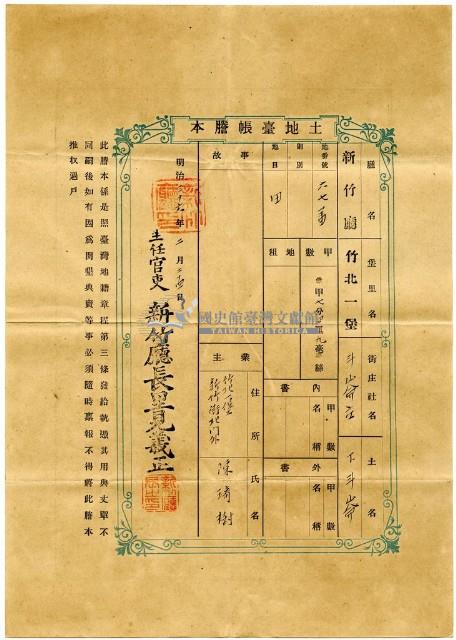 土地臺帳謄本
廳名
新竹廳
堡里名
竹北一堡
街庄社名
斗崙庄
土名
下斗崙
地番號
六七番
則別
地目
田
甲數
地租
內書
甲數
名稱
外書
甲數
名稱
事故
業主
住所
竹北一堡
新竹街北門外
氏名
陳
樹
明治
年二月
日
主任官吏 新竹廳長里見義正
此謄本係是照臺灣地籍章程第三條發給執憑其用與丈單不
同嗣後如有因為開墾典賣等事必須隨時稟報不得將此謄本
推收過戶
國史館臺灣文獻館
TAIWAN HISTORICA